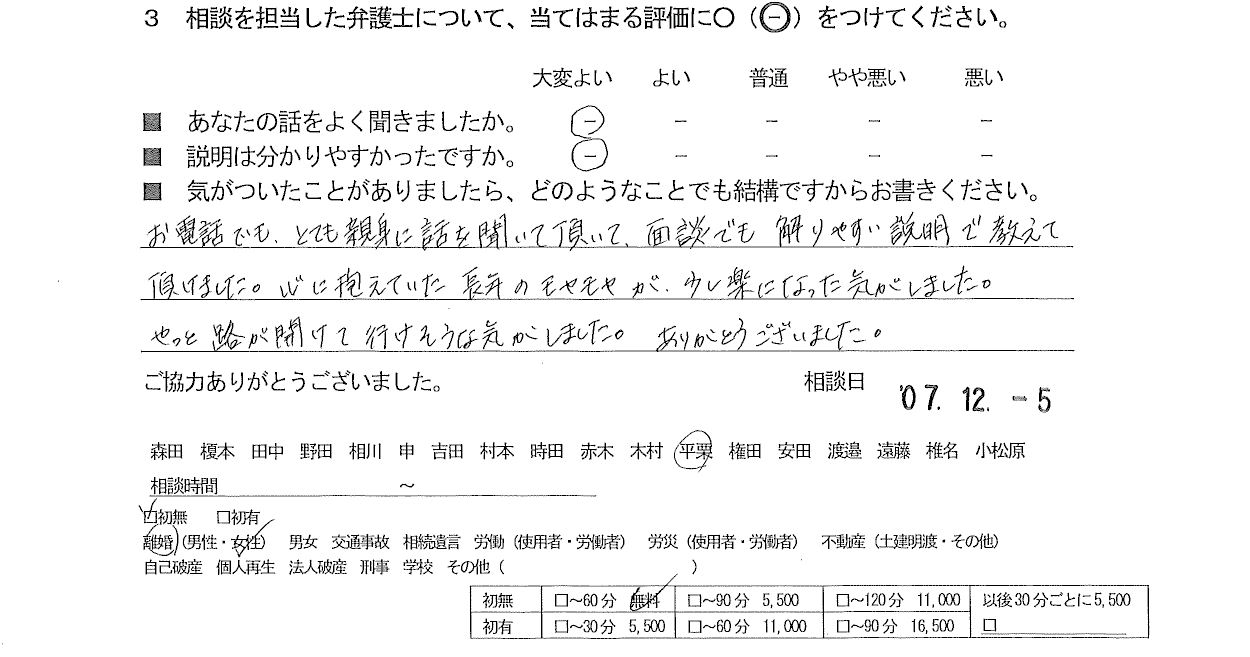 3 相談を担当した弁護士について、当てはまる評価に○(⊖)をつけてください。
大変よい よい 普通 やや悪い 悪い
■ あなたの話をよく聞きましたか。 － － － － －
■ 説明は分かりやすかったですか。 － － － － －
■ 気がついたことがありましたら、どのようなことでも結構ですからお書きください。
お電話でも、とても親身に話を聞いて頂いて、面談でも 解りやすい説明で教えて
頂けました。心に抱えていた 長年のモヤモヤが、少し楽になった気がしました。
やっと 路が開けて行けそうな気がしました。 ありがとうございました。
ご協力ありがとうございました。 相談日 '07. 12. -5
森田 榎本 田中 野田 相川 申 吉田 村本 時田 赤木 木村 平栗 権田 安田 渡邉 遠藤 椎名 小松原
相談時間 ～
□初無 □初有
離婚(男性・女性) 男女 交通事故 相続遺言 労働(使用者・労働者) 労災(使用者・労働者) 不動産(土建明渡・その他)
自己破産 個人再生 法人破産 刑事 学校 その他( )
初無 □～60分 無料 □～90分 5,500 □～120分 11,000 以後30分ごとに5,500
初有 □～30分 5,500 □～60分 11,000 □～90分 16,500 □